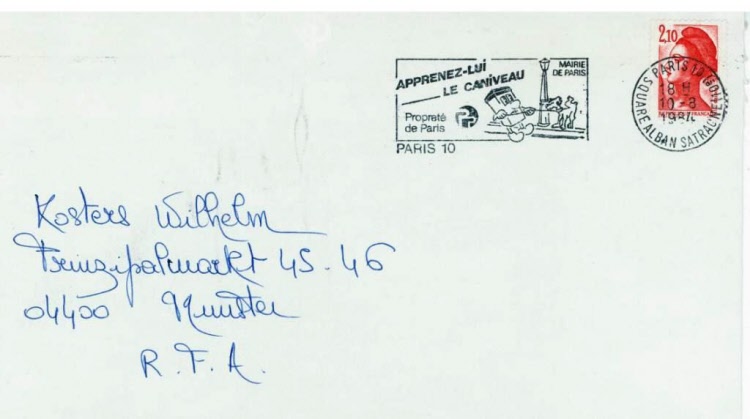 APPRENEZ-LUI
LE CANIVEAU
MAIRIE
DE PARIS
Propreté
de Paris
PARIS 10
2,10
PARIS 10
18 H
10-8
198
SQUARE ALBAN SATRAGNE
Kosters Wilhelm
Prinzipalmarkt 45.46
04400 Munster
R.F.A.